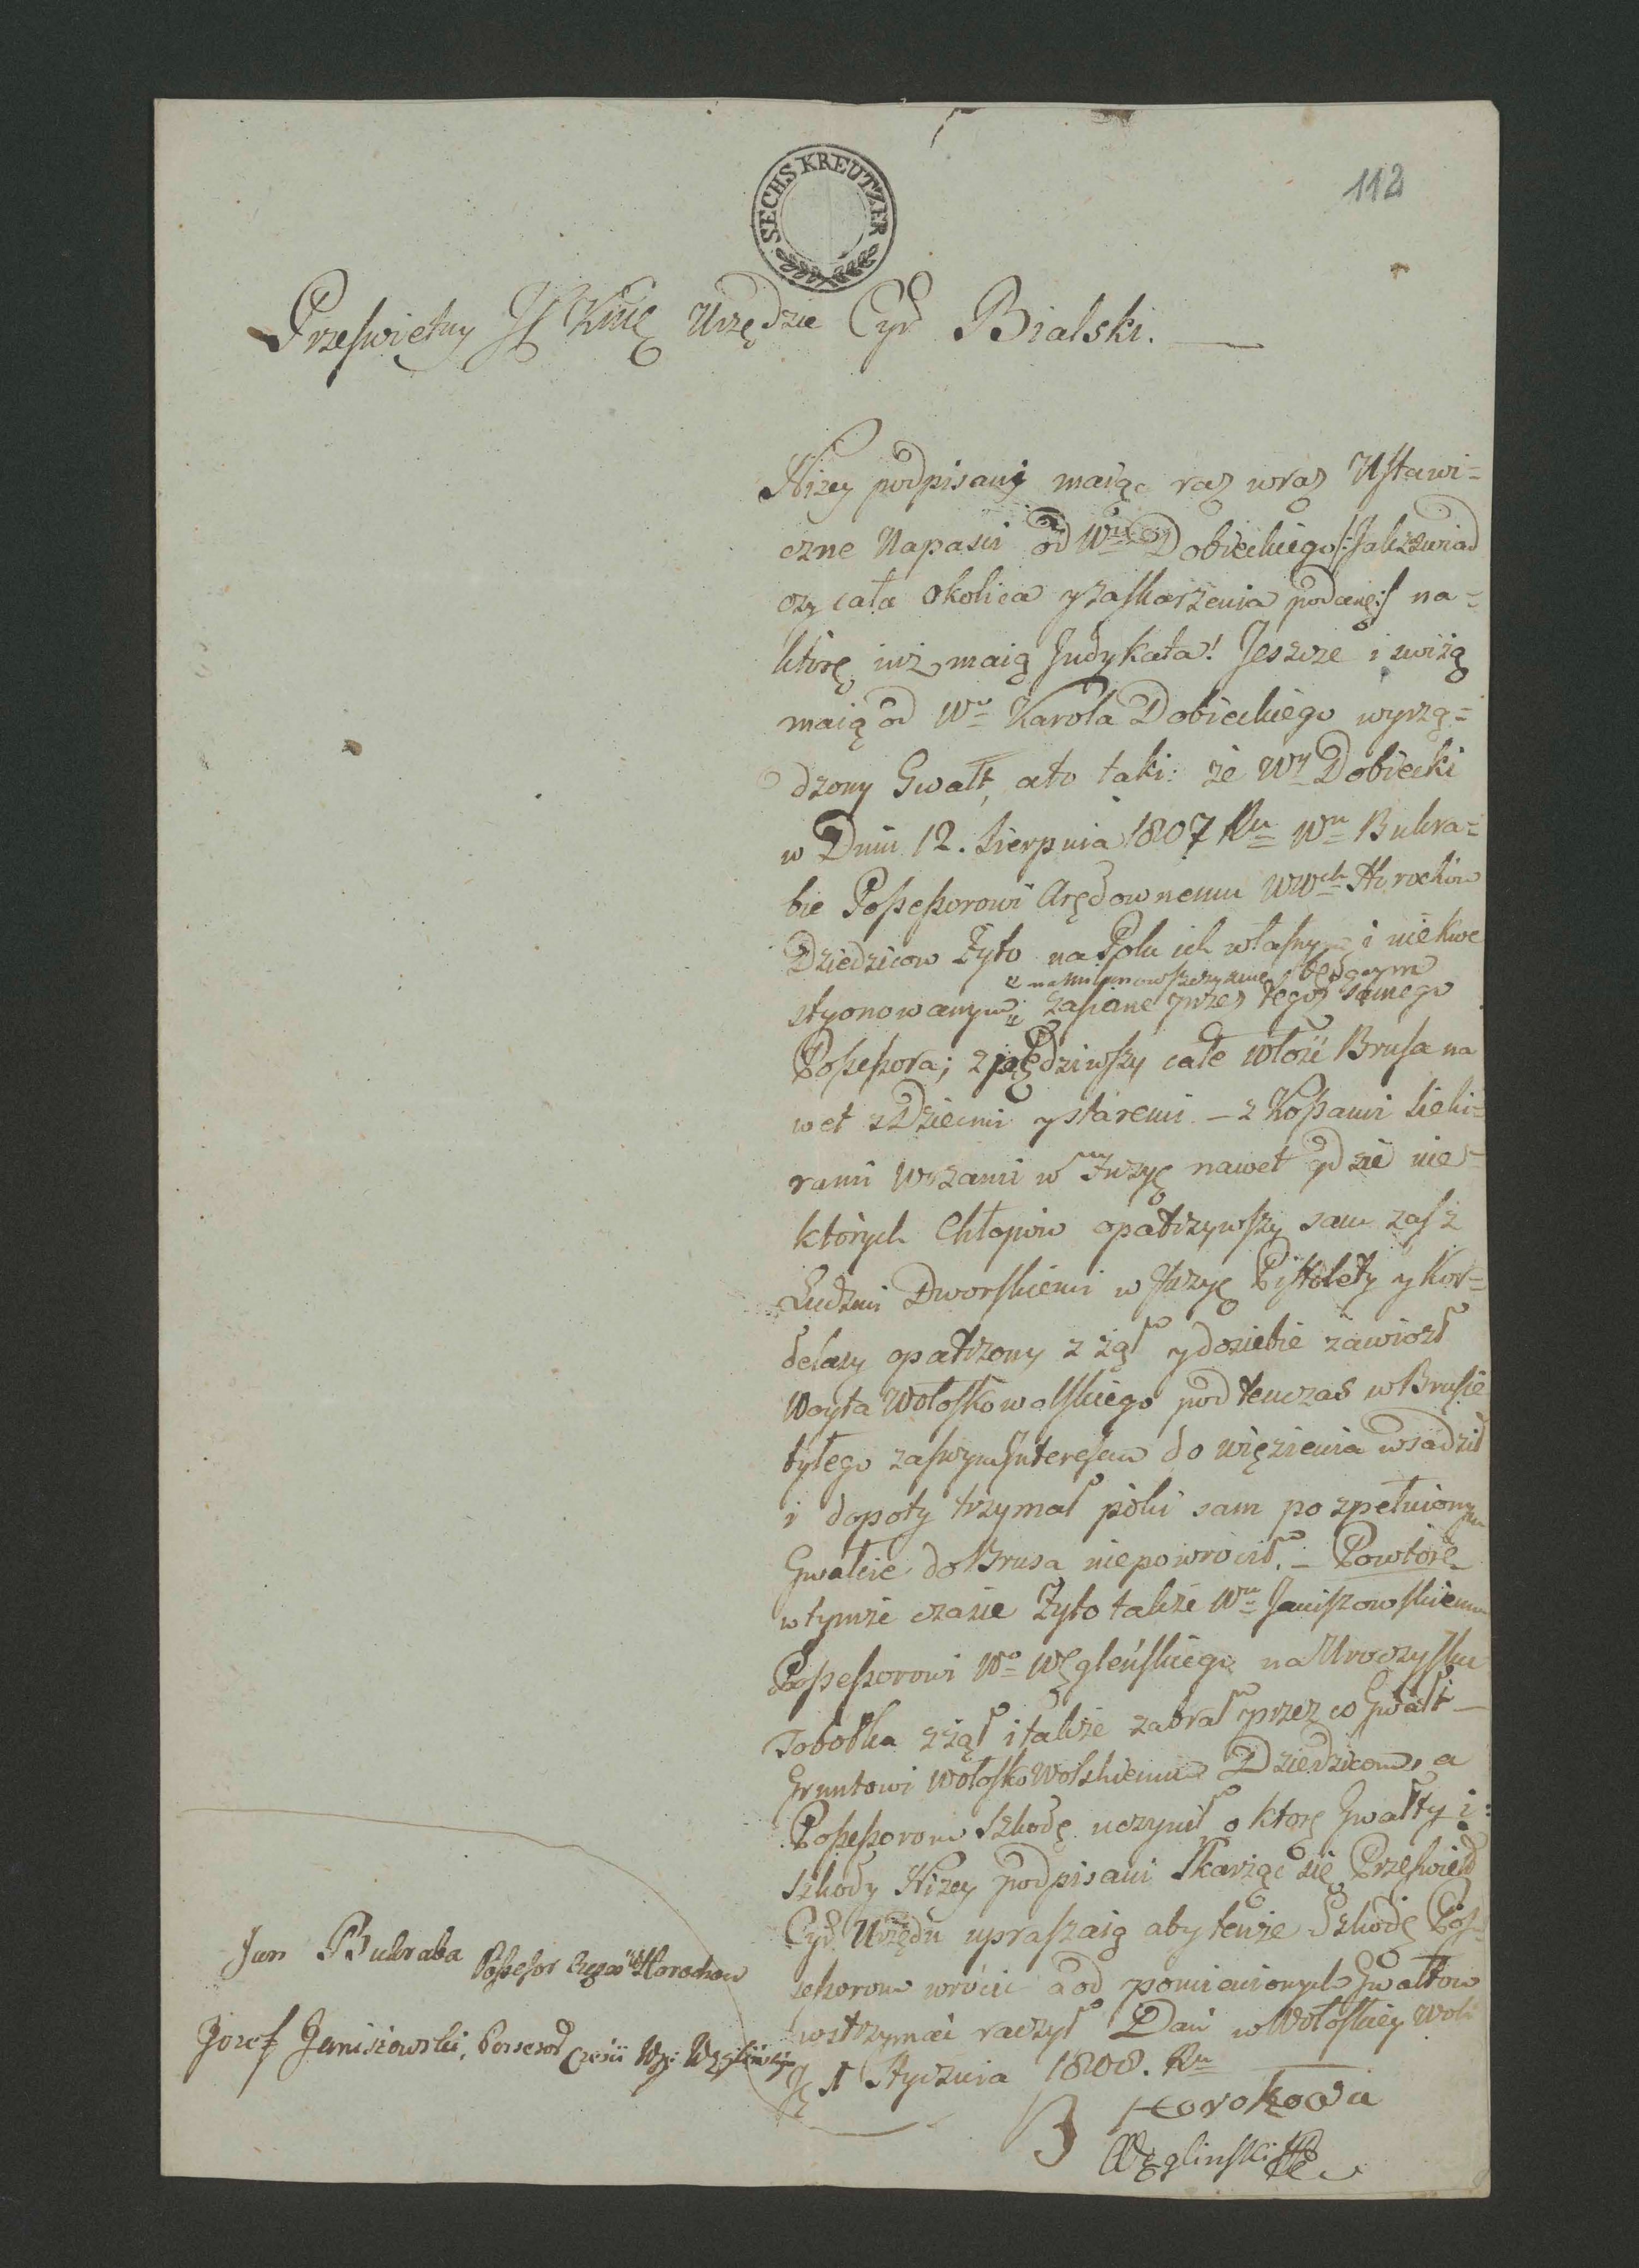 SECHS KREUTZER
112
Przeswiętny Urzędzie Cyr Bialski.
Nizey podpisani maiąc raz wraz Ustawi=
czne Napasci od Wo Dobieckiego /:Jak zwiad
czy cała okolica y zaskarzenia podane:/ na=
które iuż maią Judykata! Jeszcze i swiżą
maią od Wo Karola Dobieckiego wyrzą=
dzony Gwałt, ato taki: że Wy Dobiecki
w Dniu 12. Sierpnia 1807 Ru Wu Bukra=
bie Possessorowi Arędownemu WWch Horochów
Dziedzicow Żyto na Polu ich własnym i niekwe
z naturanowszczyznie będącym
styonowanym zasiane przez tegoz samego
Possessora; zpędziwszy całe włość Brusa na
wet z Dziecmi y staremi – z Kossami sieki=
rami w nawet gdzie nie=
których Chłopów opatrzywszy sam zas z
Ludzmi Dworskiemi w Pistolety y Kor=
delasy opatrzony zżął y dosiebie zawiozł
Woyta Wołoskowolskiego podtenczas w Brusie
byłego zaswym Interesem do więzienia wsadził
i dopoty trzymał póki sam po zpełnionym
Gwałcie do Brusa niepowrócił. – Powtóre
w tymże czasie Żyto także Wu Janiszowskiemu
Possessorowi Wo Węgleńskiego na Uroczysku
Sobotka zżął i także zabrał przez co Gwałt –
Gruntowi Wołosko Wolskiemu Dziedzicom, a
Possessorom szkodę uczynił o które Gwałty i
szkody Niżey podpisani Skarżąc się Przeswied
Cyr. Urzędu upraszaią aby tenże Szkodę Pos=
sessorom wrócić a od pomienionych Gwałtow
wstrzymać raczył Dan w Wołoskiey Woli
1 Stycznia 1808. Ru
Jan Bukraba Possesor Częsci Horochow
Jozef Janiszowski, Possesor Częsci Wgo Węglińskiego
Horohowa
Węglinski